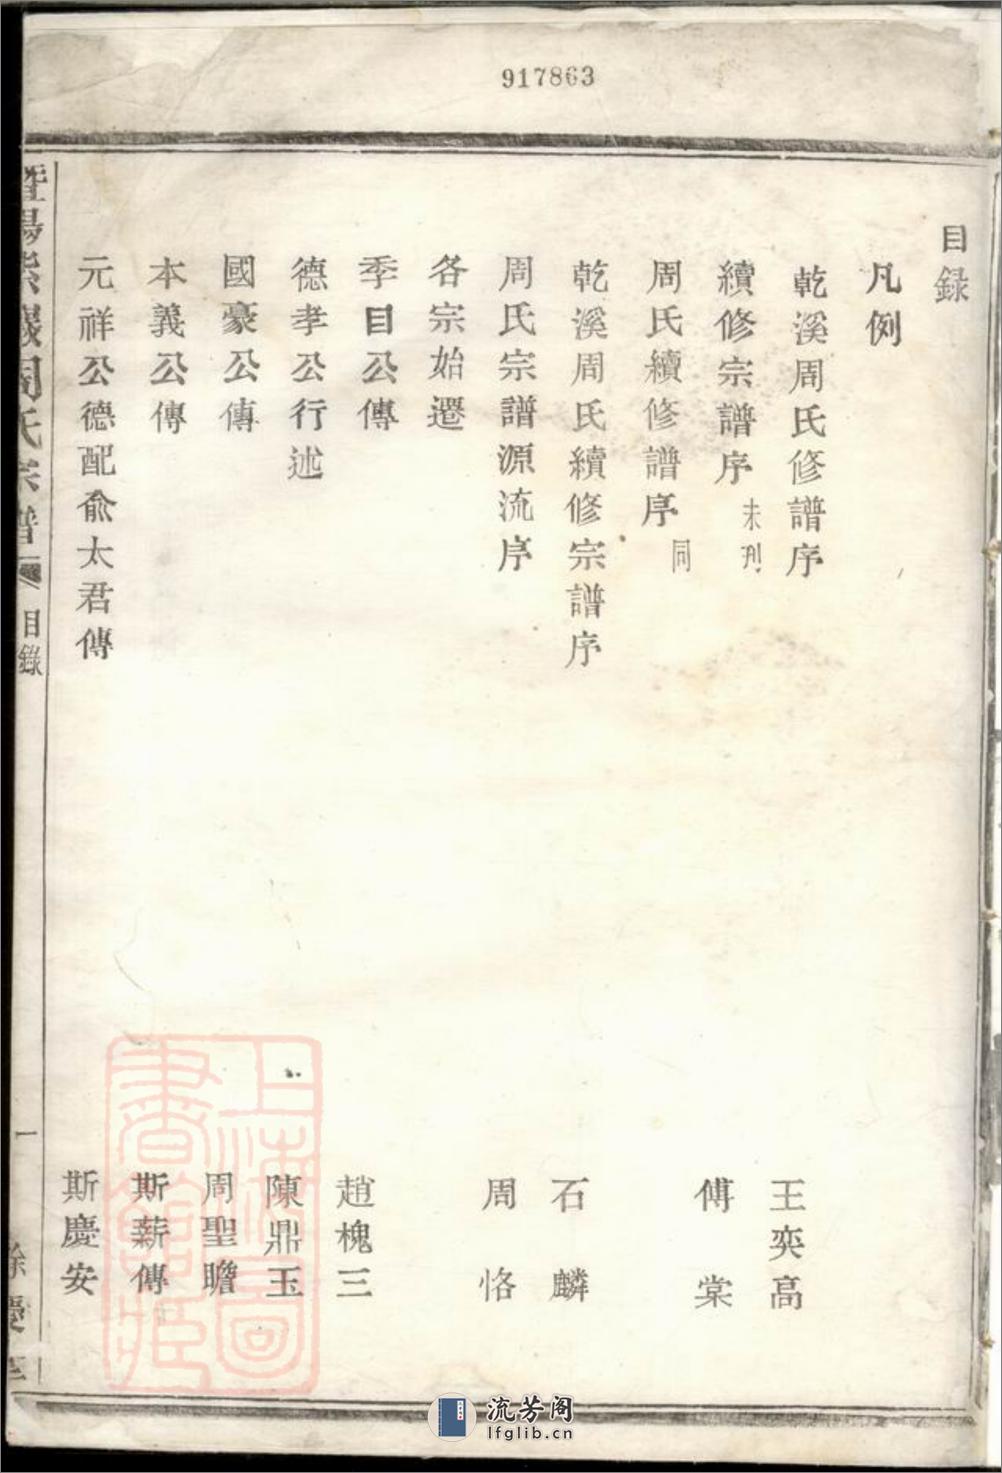 917863
目録
凡例
乾溪周氏修譜序 王奕高
續修宗譜序 未刋 傅棠
周氏續修譜序 同
乾溪周氏續修宗譜序 石麟
周氏宗譜源流序 周恪
各宗始遷
季目公傳 趙槐三
德孝公行述 陳鼎玉
國豪公傳 周聖瞻
本義公傳 斯薪傳
元祥公德配俞太君傳 斯慶安
暨陽 周氏宗譜 目錄 一 餘慶
上海圖書館藏
流芳阁
lfglib.cn